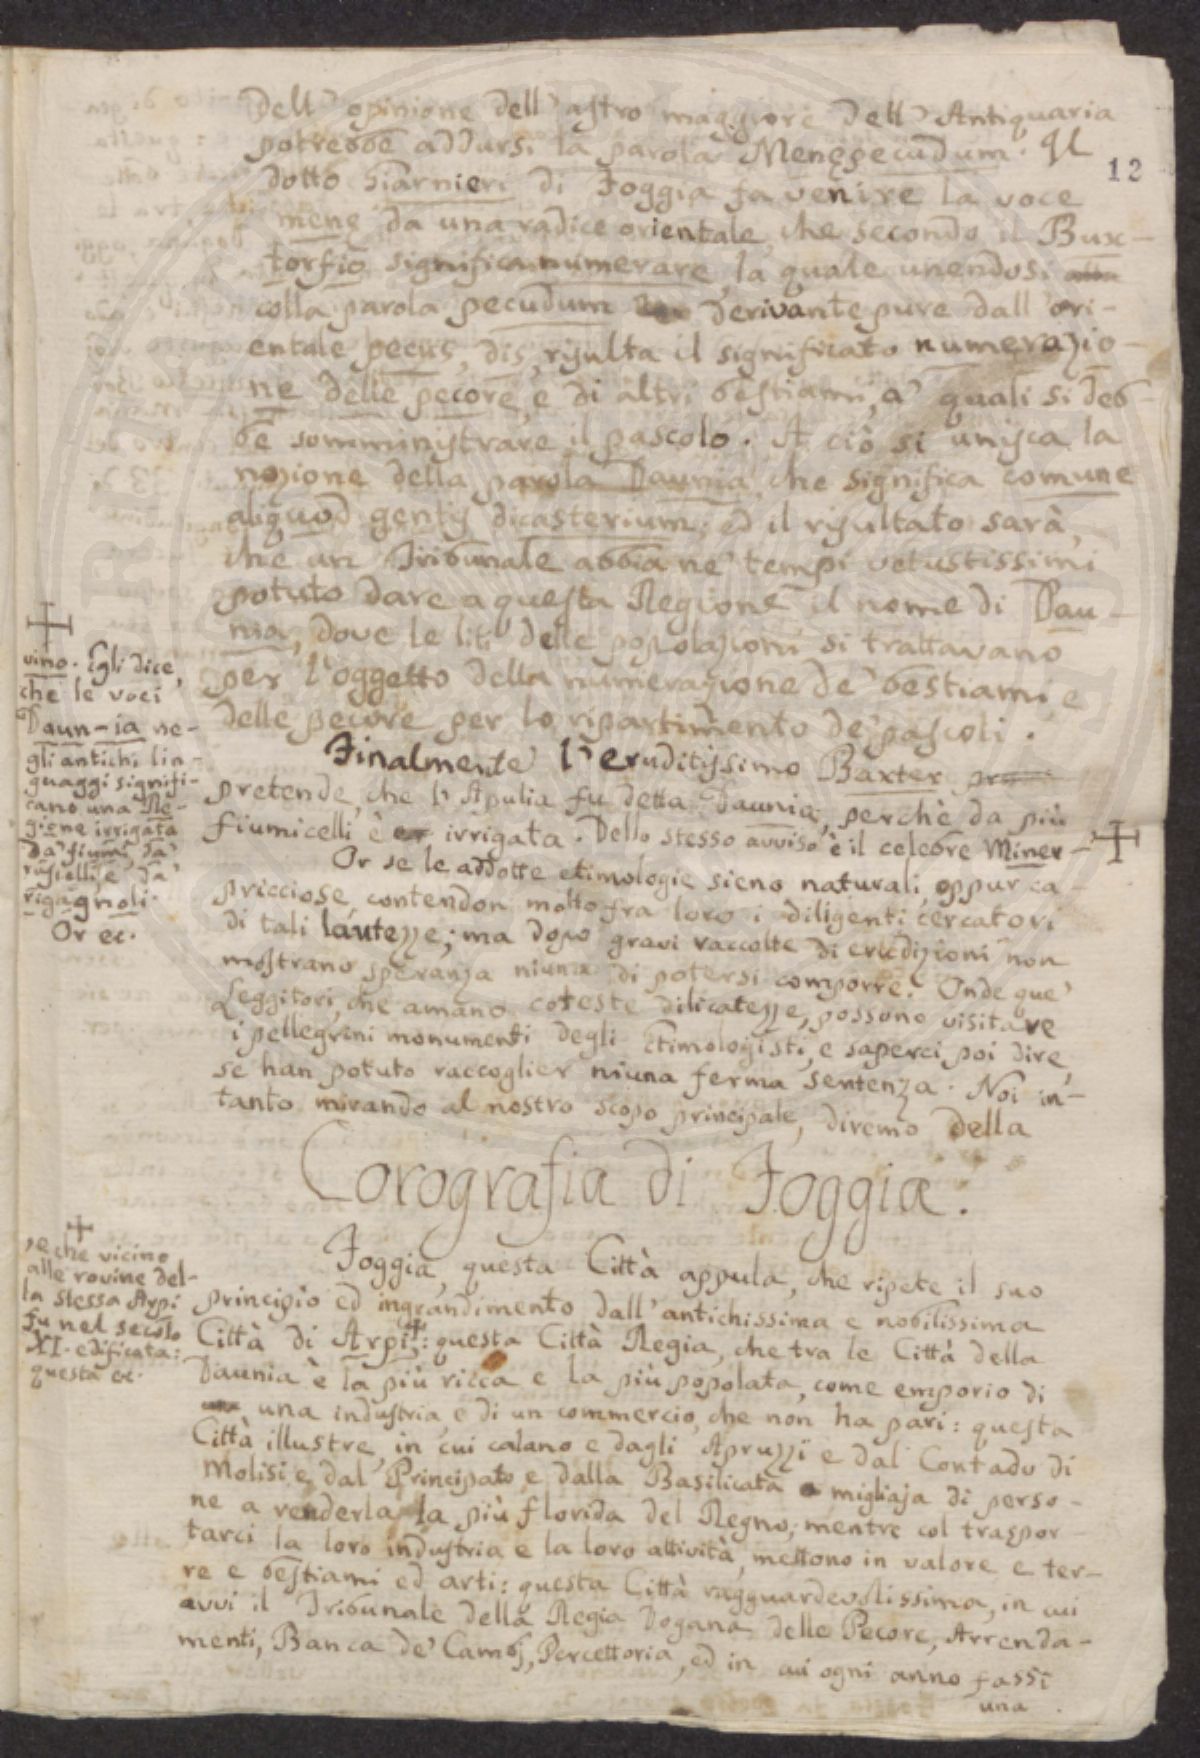 12
dell' opinione dell' astro maggiore dell' Antiquaria
potrebbe addursi la parola Menępecudum. Il
dotto Giarnieri di Foggia fa venire la voce
menę da una radice orientale, che secondo il Bux-
torfio significa numerare, la quale unendosi alla
colla parola pecudum derivante pure dall' ori-
entale pecus, dis, risulta il significato numerazio-
ne delle pecore, e di altri bestiami, a' quali si deb-
be somministrare il pascolo. A ciò si unisca la
nozione della parola Daunia, che significa comune
aliquod gentis dicasterium; ed il risultato sarà,
che un Tribunale abbia ne' tempi vetustissimi
potuto dare a questa Regione il nome di Dau-
nia, dove le liti delle popolazioni si trattavano
per l'oggetto della numerazione de' bestiami, e
delle pecore per lo ripartimento de' pascoli.
Finalmente l' eruditissimo Baxter
pretende, che l' Apulia fu detta Daunia, perchè da più
fiumicelli è irrigata. Dello stesso avviso è il celebre Miner-
vino. Egli dice,
che le voci
Daun-ia ne-
gli antichi lin-
guaggi signifi-
cano una Re-
gione irrigata
da' fiumi, da'
ruscelli, e da'
rigagnoli.
Or ec.
Or se le addotte etimologie sieno naturali, oppur ca-
pricciose, contendon molto fra loro i diligenti cercatori
di tali lautezze; ma dopo gravi raccolte di erudizioni non
mostrano speranza niuna di potersi comporre. Onde que'
Leggitori, che amano coteste dilicatezze, possono visitare
i pellegrini monumenti degli Etimologisti, e saperci poi dire,
se han potuto raccoglier niuna ferma sentenza. Noi in-
tanto mirando al nostro scopo principale, diremo della
Corografia di Foggia.
Foggia, questa Città appula, che ripete il suo
principio ed ingrandimento dall' antichissima e nobilissima
Città di Arpi: questa Città Regia, che tra le Città della
se che vicino
alle rovine del-
la stessa Arpi
fu nel secolo
XI. edificata:
questa ec.
Daunia è la più ricca e la più popolata, come emporio di
una industria e di un commercio, che non ha pari: questa
Città illustre, in cui calano e dagli Apruzzi e dal Contado di
Molisi e dal Principato e dalla Basilicata migliaja di perso-
ne a renderla la più florida del Regno; mentre col traspor-
tarci la loro industria e la loro attività, mettono in valore e ter-
re e bestiami ed arti: questa Città ragguardevolissima, in cui
avvi il Tribunale della Regia Dogana delle Pecore, Arrenda-
menti, Banca de' Cambj, Percettoria, ed in cui ogni anno fassi
una